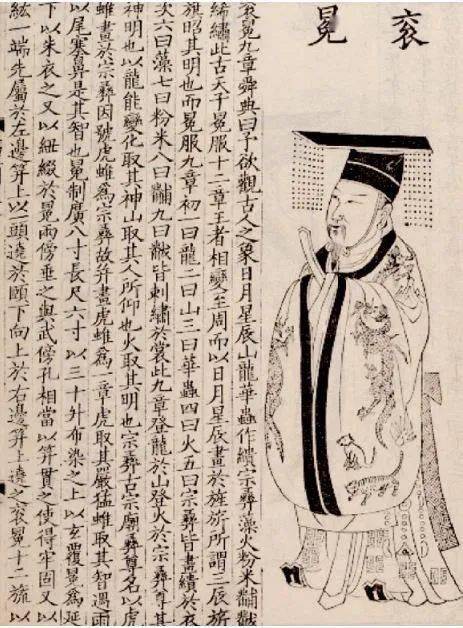 衮冕
衮冕九章舜典曰予欲觀古人之象日月星辰山龍華蟲作繢宗彝藻火粉米黼黻
絺繡此古天子冕服十二章王者相變至周而以日月星辰畫於旌旂所謂三辰旂
旗昭其明也而冕服九章初一曰龍二曰山三曰華蟲四曰火五曰宗彝皆畫繢於衣
次六曰藻七曰粉米八曰黼九曰黻皆刺繡於裳此九章登龍於山登火於宗彝尊其
神明也以龍能變化取其神山取其人所仰也火取其明也宗彝古宗廟彝尊名以虎
蜼畫於宗彝因號虎蜼為宗彝故并畫虎蜼為一章虎取其嚴猛蜼取其智遇雨
以尾塞鼻是其智也冕制廣八寸長尺六寸以三十升布染之上以玄覆冕為延
下以朱衣之又以紐綴於冕兩傍垂之與武傍孔相當以笄貫之使得牢固又以
紘一端先屬於左邊笄上以一頭遶於頤下向上於右邊笄上遶之衮冕十二旒以